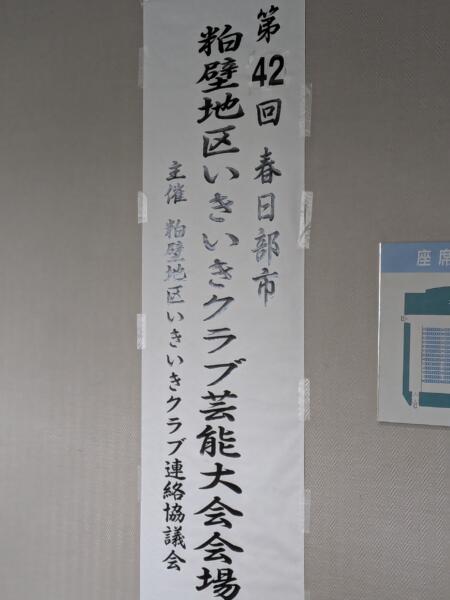 第42回 春日部市
粕壁地区いきいきクラブ芸能大会会場
主催 粕壁地区いきいきクラブ連絡協議会
座席